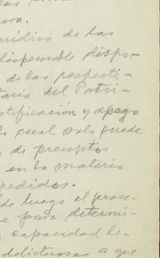 ora.
urídica de las
dispensable dispo-
de las respecti-
taria del Patri-
tificación y apego
lo cual solo puede
de preceptos
en la materia
pedidos.
de luego el proce-
e para determi-
capacidad le-
delictuosa a que